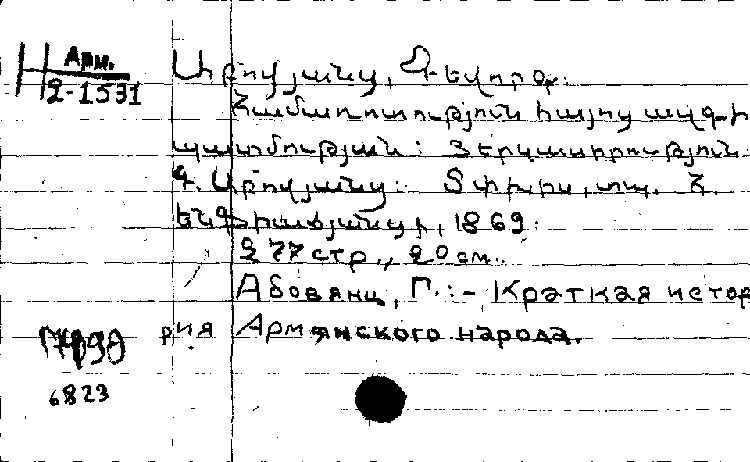 Арм.
2-1531
Աբովյանց, Գեվորգ.
Համառոտություն հայոց ազգի
պատմության: Յերկասիրություն
Գ. Աբովյանց: Տփխիս, տպ. Հ.
Ենֆիաճյանցի, 1869.
277 стр., 20 см.
Абовянц, Г.:- Краткая исто-
рия Армянского народа.
6823